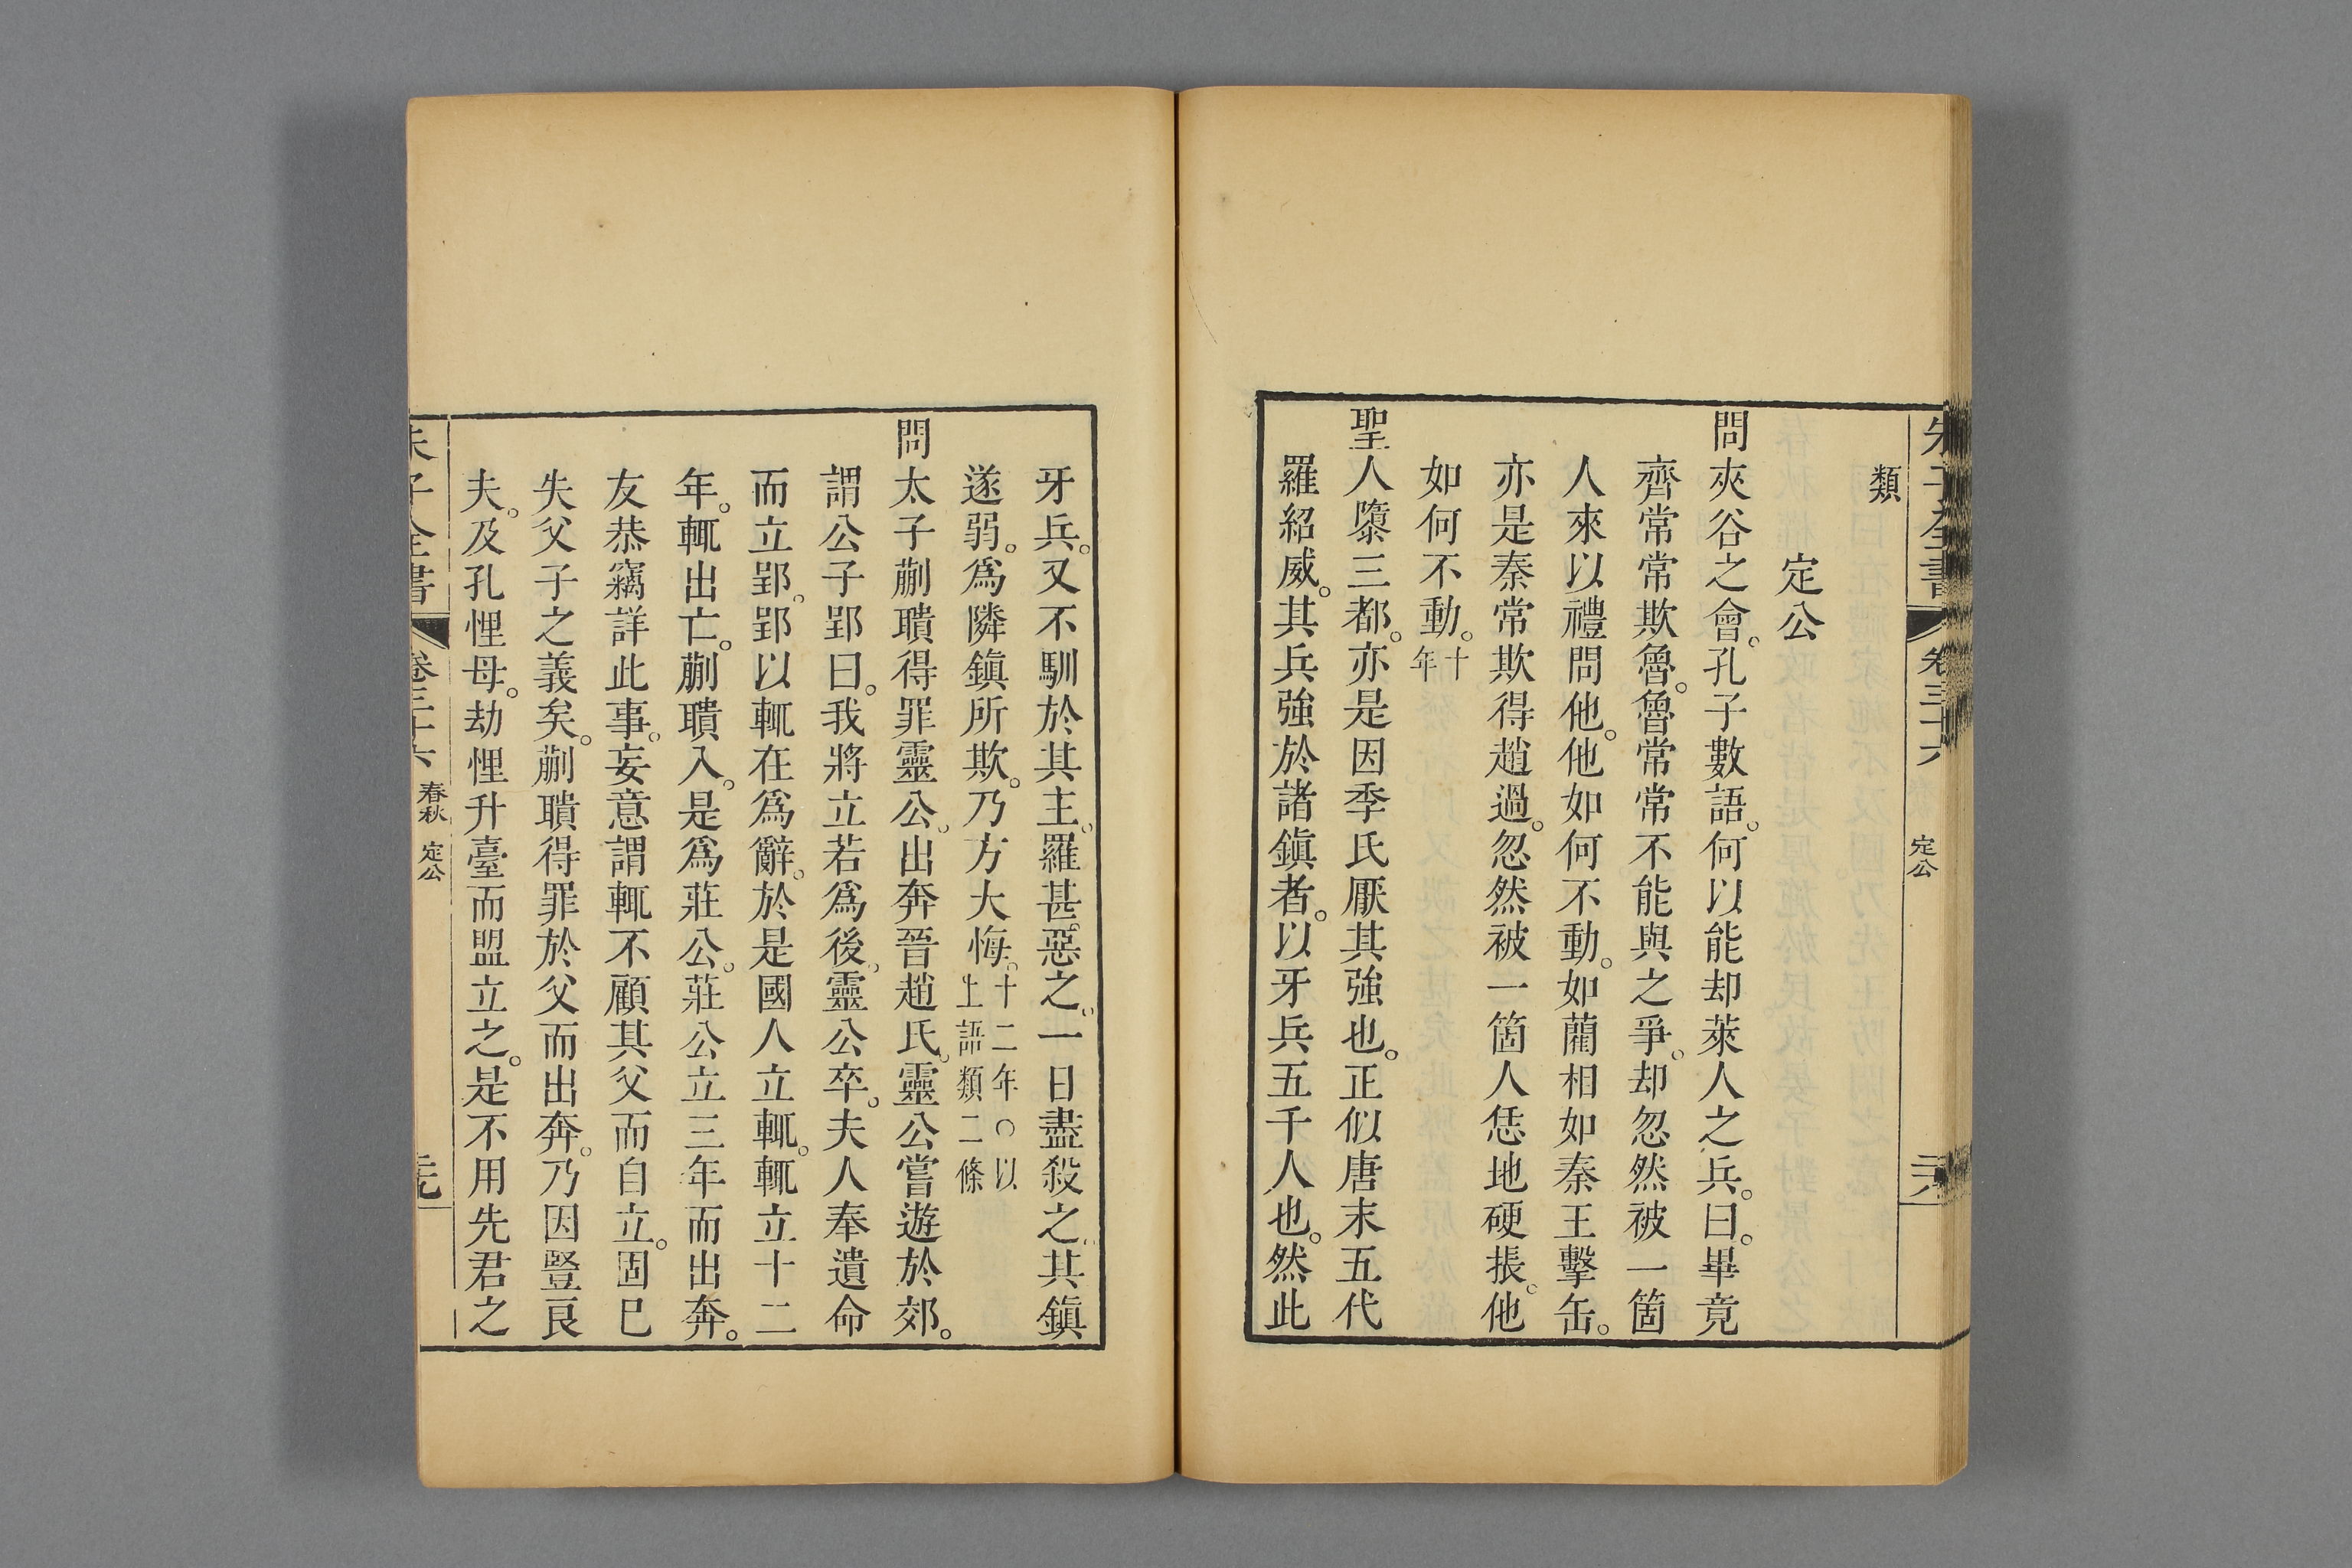 類
定公
問夾谷之會。孔子數語。何以能却萊人之兵。曰。畢竟
齊常常欺魯。魯常常不能與之爭。却忽然被一箇
人來以禮問他。他如何不動。如藺相如秦王擊缶。
亦是秦常欺得趙過。忽然被一箇人恁地硬掁。他
如何不動。十年
聖人隳三都。亦是因季氏厭其強也。正似唐末五代
羅紹威。其兵強於諸鎮者。以牙兵五千人也。然此
定公
牙兵。又不馴於其主。羅甚惡之。一日盡殺之。其鎮
遂弱。爲隣鎮所欺。乃方大悔。十二年○以上語類二條
問太子蒯聵得罪靈公。出奔晉趙氏。靈公嘗遊於郊。
謂公子郢曰。我將立若爲後。靈公卒。夫人奉遺命
而立郢。郢以輒在爲辭。於是國人立輒。輒立十二
年。輒出亡。蒯聵入。是爲莊公。莊公立三年而出奔。
友恭竊詳此事。妄意謂輒不顧其父而自立。固已
失父子之義矣。蒯聵得罪於父而出奔。乃因豎良
夫。及孔悝母。劫悝升臺而盟立之。是不用先君之
春秋 定公